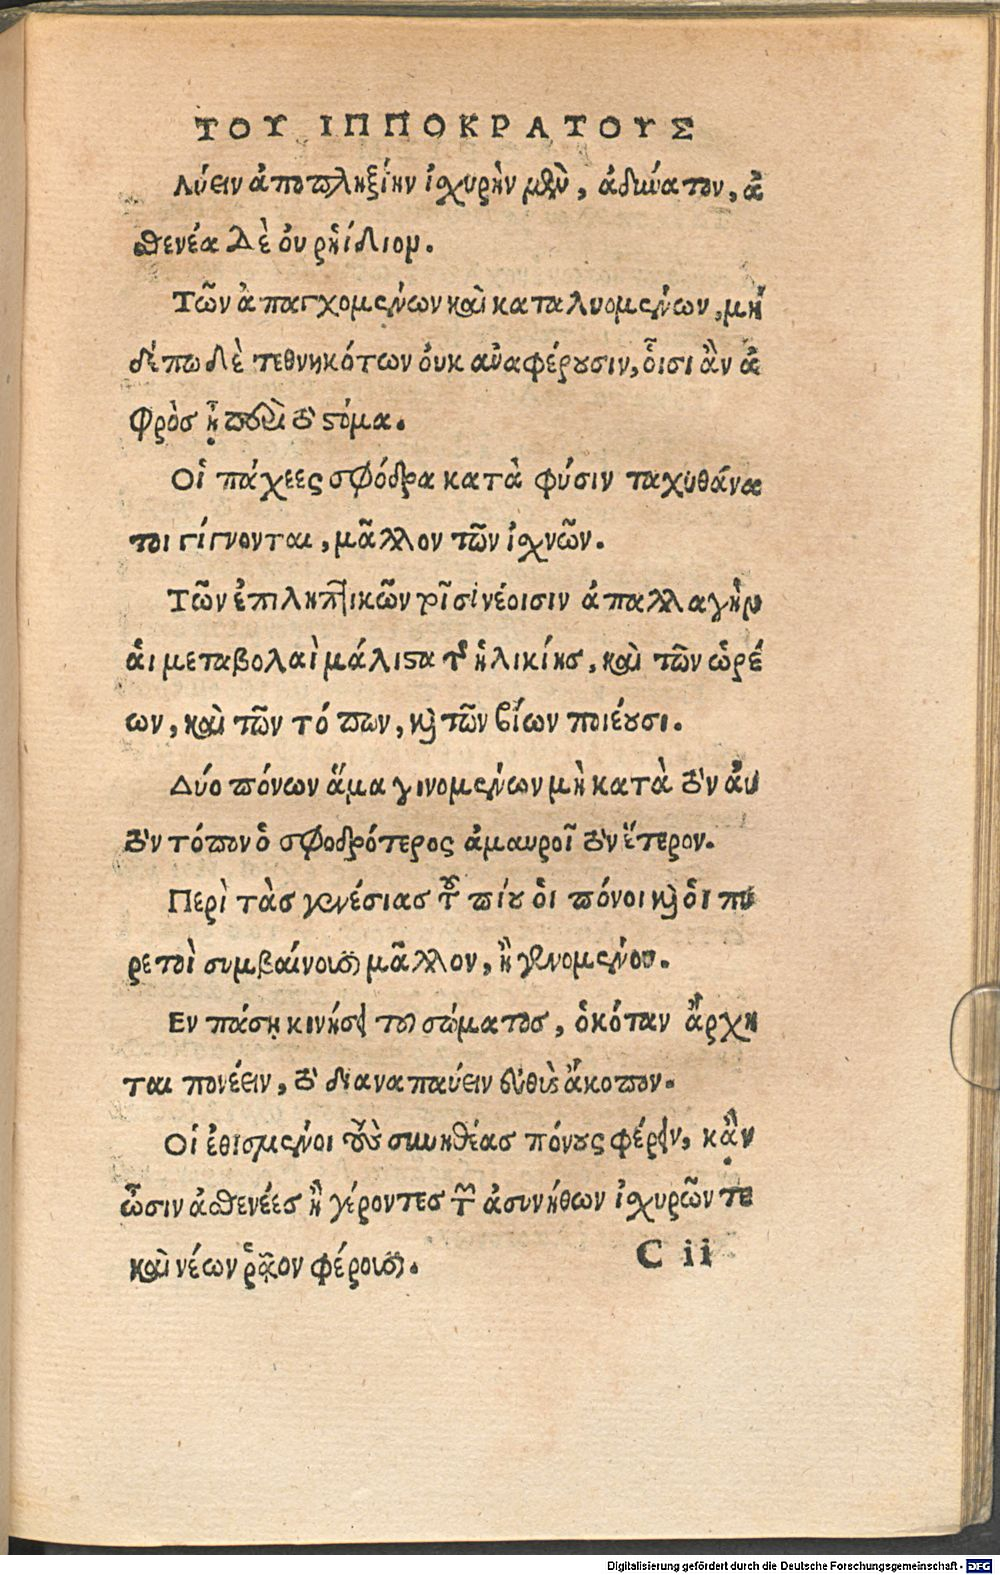 ΤΟΥ ΙΠΠΟΚΡΑΤΟΥΣ
Λύειν ἀποπληξίην ἰσχυρὴν μὲν, ἀδύνατον, ἀ
σθενέα δὲ οὐ ῥηίδιον.
Τῶν ἀπαγχομένων καὶ καταλυομένων, μη
δέπω δὲ τεθνηκότων οὐκ ἀναφέρουσιν, οἷσι ἂν ἀ
φρὸς ᾖ περὶ τὸ στόμα.
Οἱ πάχεες σφόδρα κατὰ φύσιν ταχυθάνα
τοι γίγνονται, μᾶλλον τῶν ἰσχνῶν.
Τῶν ἐπιληπτικῶν τοῖσι νέοισιν ἀπαλλαγὴν
αἱ μεταβολαὶ μάλιστα τῆς ἡλικίης, καὶ τῶν ὡρέ
ων, καὶ τῶν τόπων, καὶ τῶν βίων ποιέουσι.
Δύο πόνων ἅμα γινομένων μὴ κατὰ τὸν αὐ
τὸν τόπον ὁ σφοδρότερος ἀμαυροῖ τὸν ἕτερον.
Περὶ τὰς γενέσιας τοῦ πύου οἱ πόνοι καὶ οἱ πυ
ρετοὶ συμβαίνουσι μᾶλλον, ἢ γενομένου.
Εν πάσῃ κινήσει τοῦ σώματος, ὁκόταν ἄρχη
ται πονέειν, τὸ διαναπαύειν εὐθὺς ἄκοπον.
Οἱ ἐθισμένοι τοὺς συνηθέας πόνους φέρειν, κἂν
ὦσιν ἀσθενέες ἢ γέροντες τῶν ἀσυνήθων ἰσχυρῶν τε
καὶ νέων ῥᾷον φέρουσι.
C ii
Digitalisierung gefördert durch die Deutsche Forschungsgemeinschaft - DFG